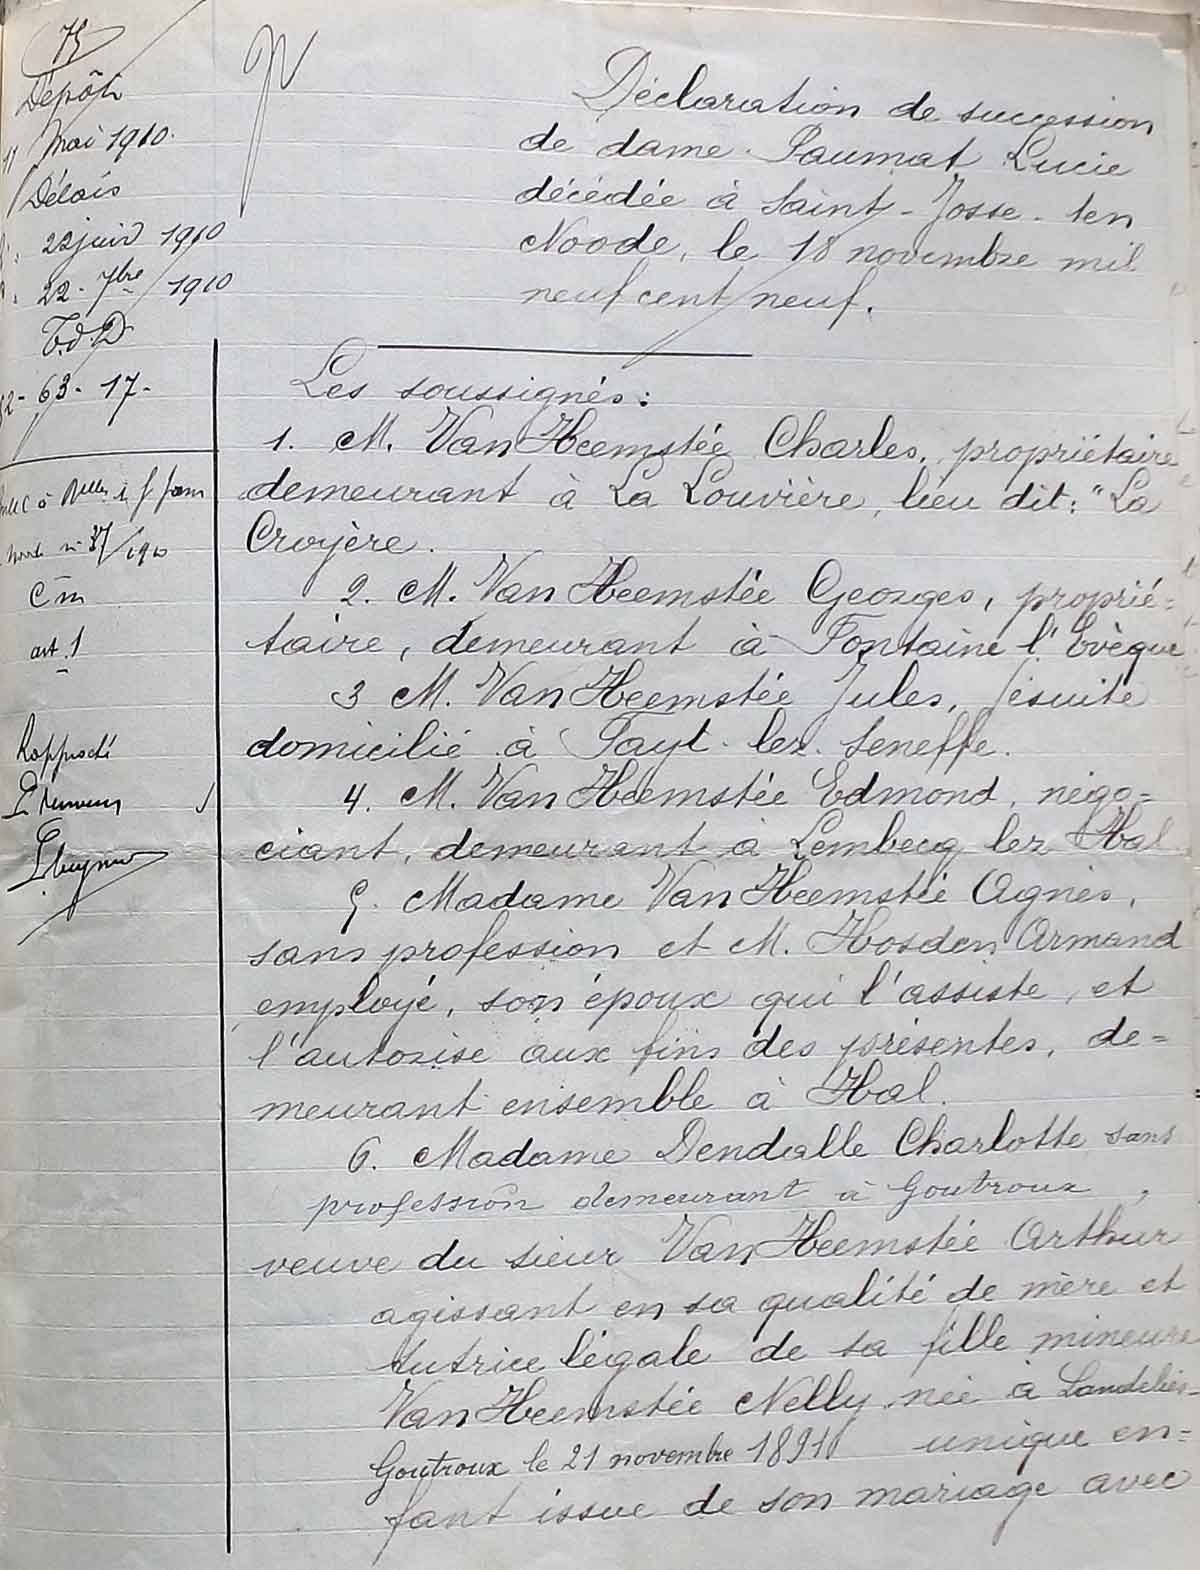 75
Dépôt
11 Mai 1910.
Délais
22 juin 1910
22 - 7bre 1910
T.d.D
63 - 17 -
37/1910
art. 1
Déclaration de succession
de dame Paumat Lucie
décédée à Saint-Josse-ten
Noode, le 18 novembre mil
neuf cent neuf.
Les soussignés :
1. M. Van Heemstée Charles, propriétaire
demeurant à La Louvière, lieu dit : "La
Croyère.
2. M. Van Heemstée Georges, proprié=
taire, demeurant à Fontaine l'Evèque
3 M. Van Heemstée Jules, jésuite
domicilié à Fayt-lez-Seneffe.
4. M. Van Heemstée Edmond, négo=
ciant, demeurant à Lembecq lez Hal.
5. Madame Van Heemstée Agnès,
sans profession et M. Hosden Armand
employé, son époux qui l'assiste et
l'autorise aux fins des présentes, de=
meurant ensemble à Hal.
6. Madame Dendalle Charlotte sans
profession demeurant à Goutroux,
veuve du sieur Van Heemstée Arthur
agissant en sa qualité de mère et
tutrice légale de sa fille mineure
Van Heemstée Nelly née à Landelies-
Goutroux le 21 novembre 1891 unique en=
fant issue de son mariage avec